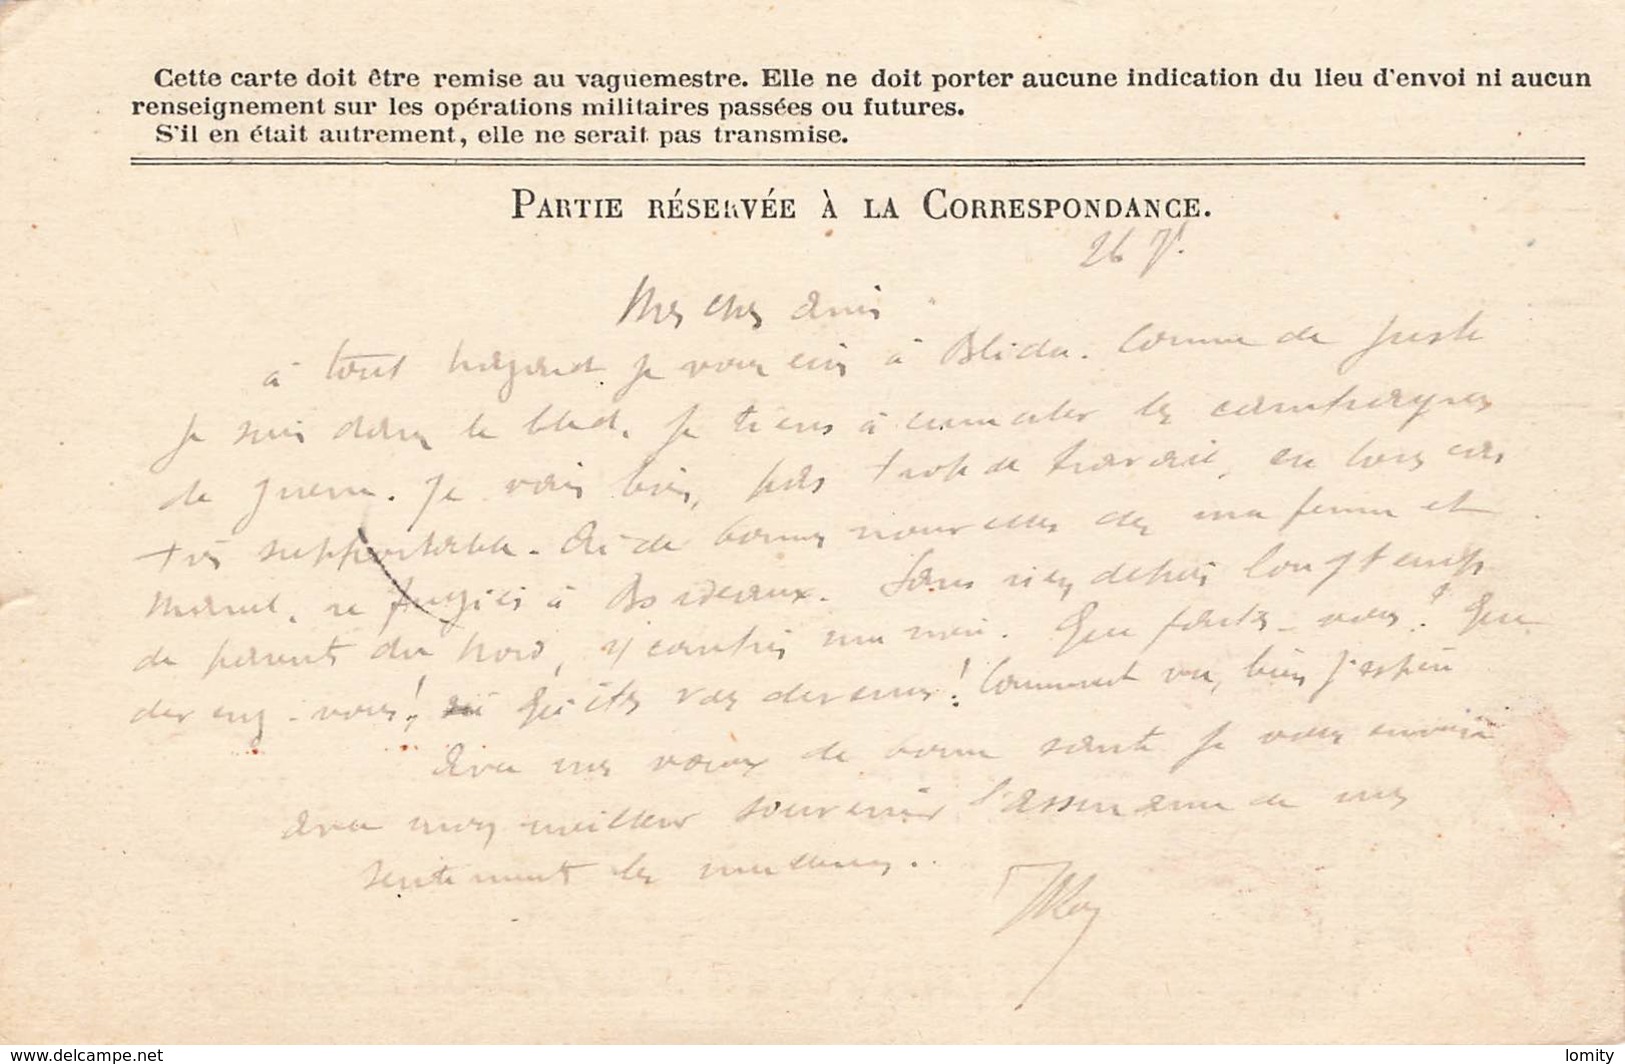 Cette carte doit être remise au vaguemestre. Elle ne doit porter aucune indication du lieu d'envoi ni aucun
renseignement sur les opérations militaires passées ou futures.
S'il en était autrement, elle ne serait pas transmise.
PARTIE RÉSERVÉE À LA CORRESPONDANCE.
26 7
Mes chers amis
à tout hazard je vous écris à Blida. Comme de juste
je suis dans le bled. Je tiens à cumuler les campagnes
de guerre. Je vais bien, pas trop de travail, en tous cas
très supportable. Ai de bonnes nouvelles de ma femme et
Marcel, refugiés à Bordeaux. Sans rien depuis longtemps
de parents du Nord, y compris ma mère. Que faites-vous? Que
devenez-vous! Qu'êtes vous devenus! Comment va, bien j'espère
Avec mes vœux de bonne santé je vous envoie
avec mon meilleur souvenir l'assurance de mes
sentiments les meilleurs.
www.delcampe.net
lomity